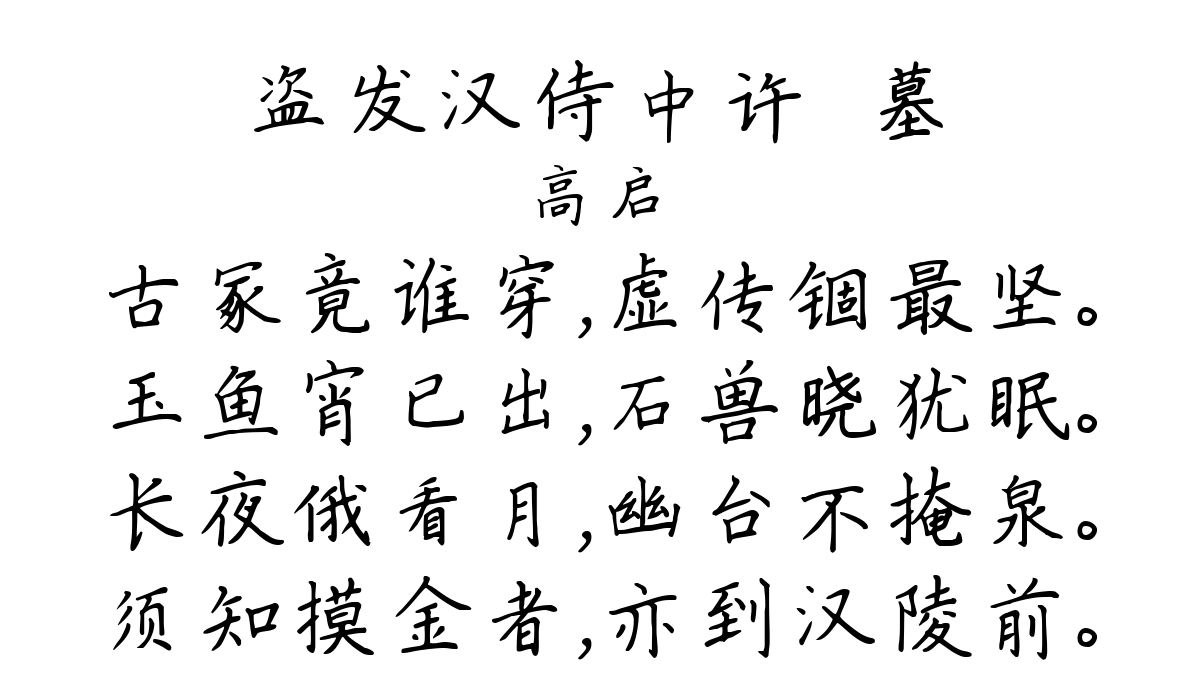 盗发汉侍中许 墓
高启
古冢竟谁穿,虚传锢最坚。
玉鱼宵已出,石兽晓犹眠。
长夜俄看月,幽台不掩泉。
须知摸金者,亦到汉陵前。